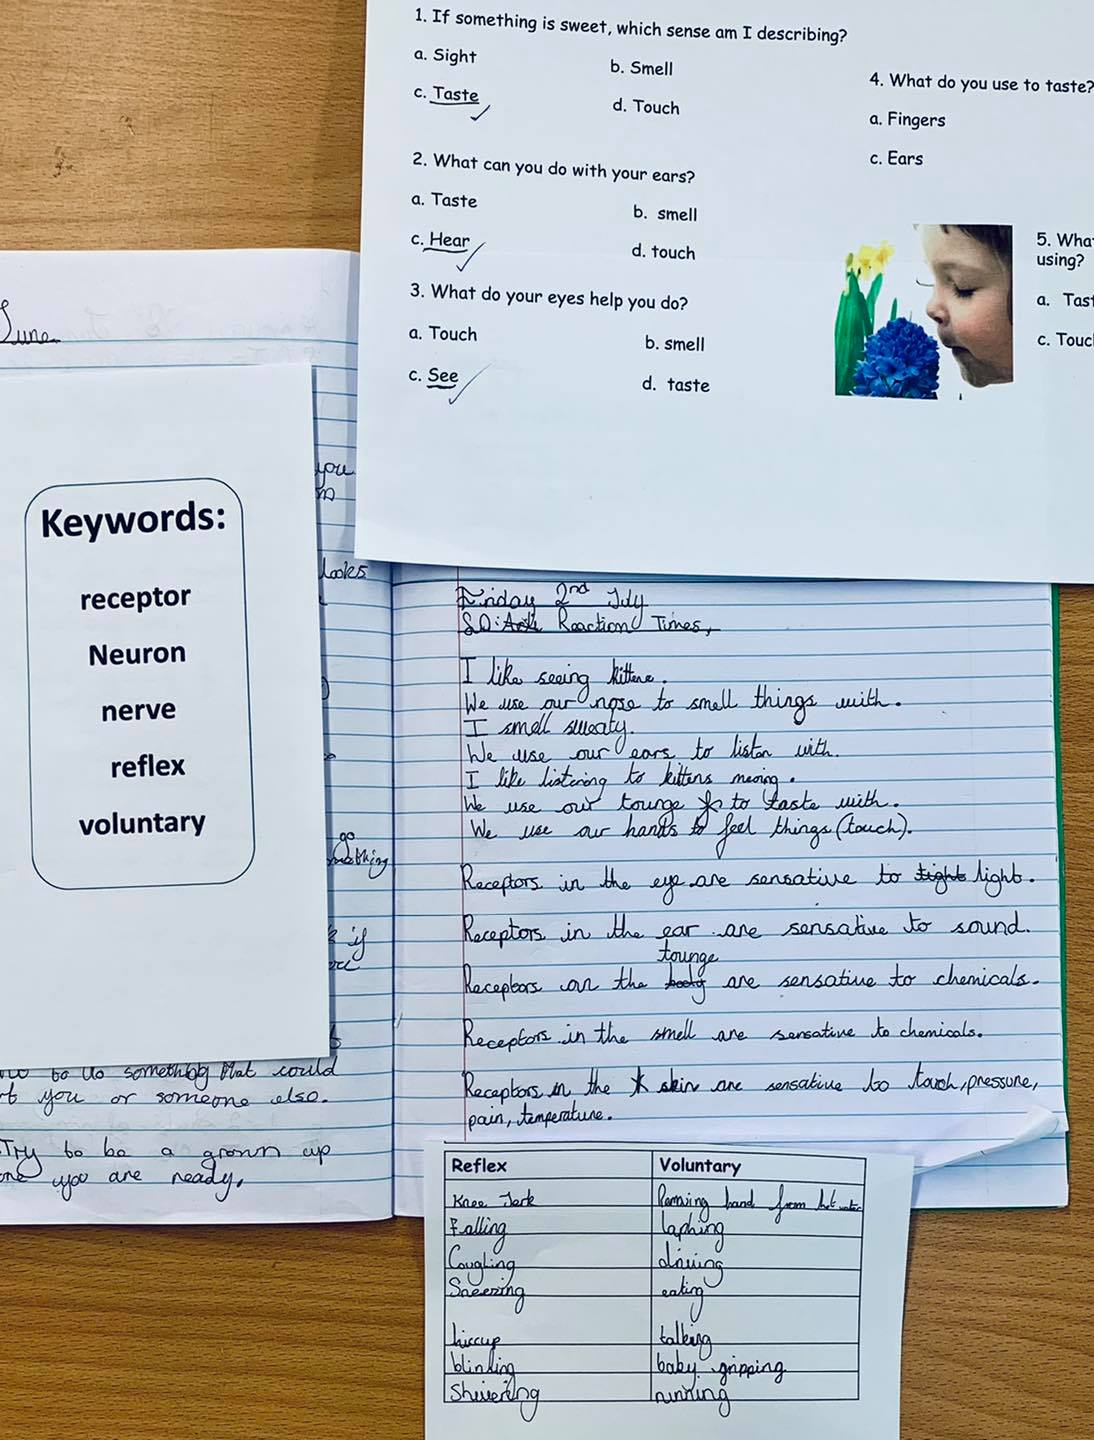 1. If something is sweet, which sense am I describing?
a. Sight
b. Smell
c. Taste
d. Touch
2. What can you do with your ears?
a. Taste
b. smell
c. Hear
d. touch
3. What do your eyes help you do?
a. Touch
b. smell
c. See
d. taste
4. What do you use to taste?
a. Fingers
c. Ears
5. Wha
using?
a. Tas
c. Touc
June
Keywords:
receptor
Neuron
nerve
reflex
voluntary
you
looks
go
if
to do something that could
you or someone else.
Try to be a grown up
you are ready.
Friday 2nd July
Reaction Times,
I like seeing kittens.
We use our nose to smell things with.
I smell sweaty.
We use our ears to listen with.
I like listering to kittens mewing.
We use our tounge to taste with.
We use our hands to feel things (touch).
Receptors in the eye are sensative to tight light.
Receptors in the ear are sensative to sound.
tounge
Receptors on the body are sensative to chemicals.
Receptors in the smell are sensative to chemicals.
Receptors in the skin are sensative to touch, pressure,
pain, temperature.
Reflex Voluntary
Knee Jerk Removing hand from hot water
Falling laphing
Coughing driving
Sneezing eating
hiccup talking
blinking baby gripping
Shivering running